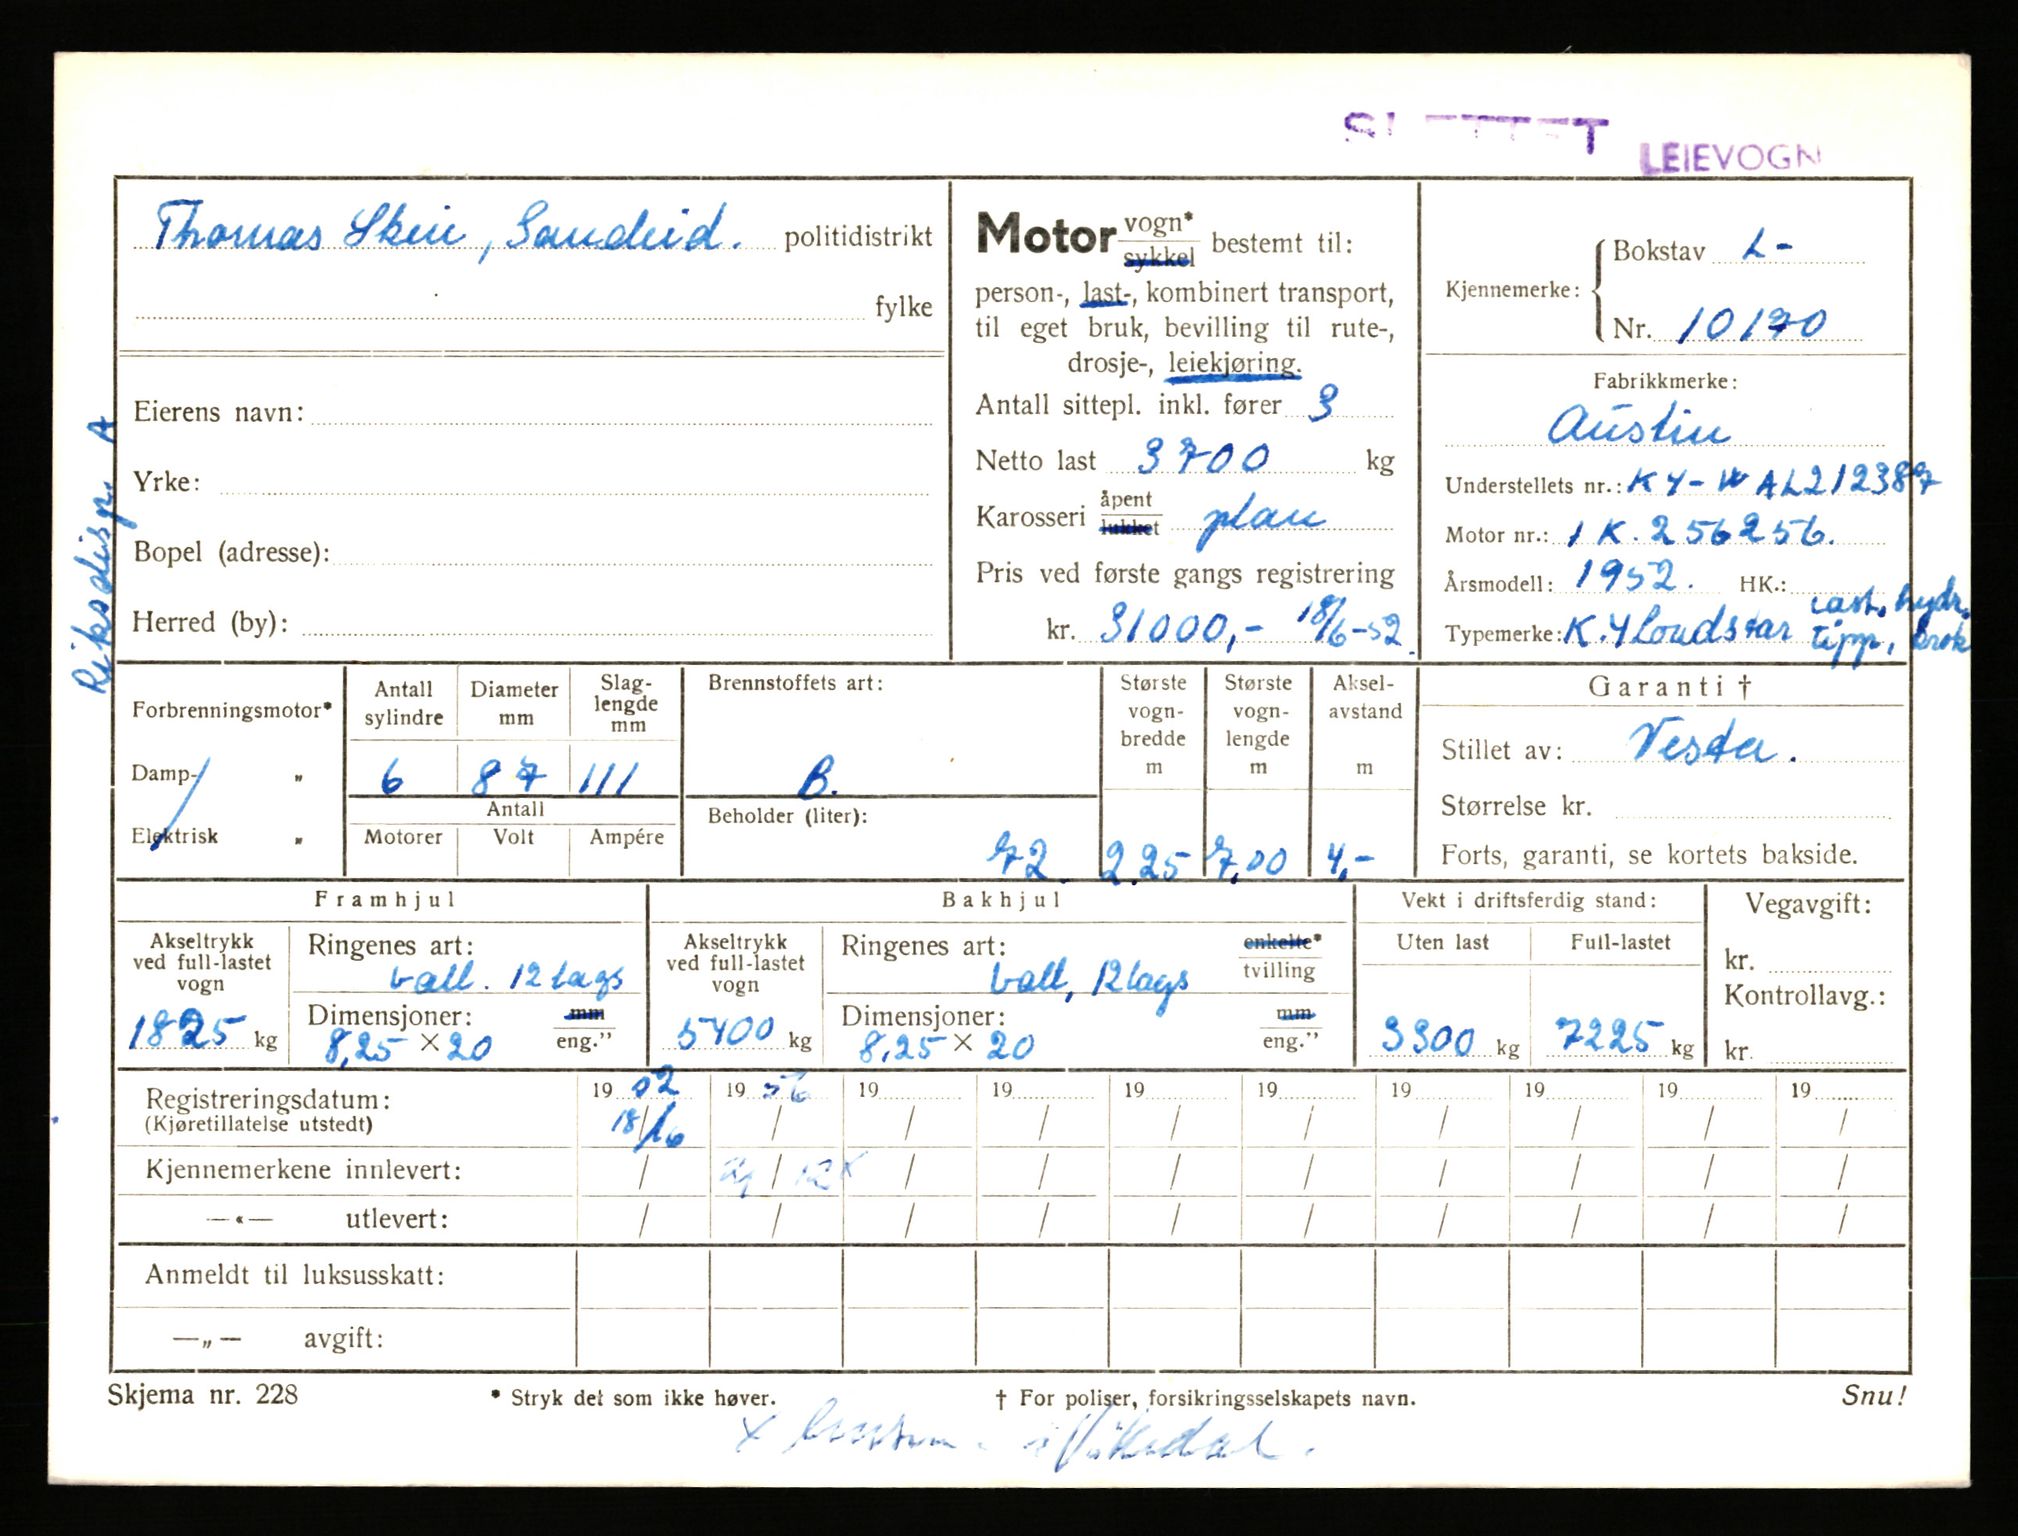 SLETTET
LEIEVOGN
Thomas Skeie, Sandeid. politidistrikt
fylke
Eierens navn:
Yrke:
Bopel (adresse):
Herred (by):
Riksdisp. A
Motor vogn* sykkel bestemt til:
person-, last-, kombinert transport,
til eget bruk, bevilling til rute-,
drosje-, leiekjøring.
Antall sittepl. inkl. fører 3
Netto last 3700 kg
Karosseri åpent lukket plan
Pris ved første gangs registrering
kr. 31000,- 18/6-52.
Kjennemerke: Bokstav L-
Nr. 10170
Fabrikkmerke:
Austin
Understellets nr.: K4-WAL212387
Motor nr.: 1K.256256.
Årsmodell: 1952. HK.:
Typemerke: K.4 Loadstar last, hydr. tipp, krok
Forbrenningsmotor*
Damp- „
Elektrisk „
Antall sylindre Diameter mm Slag-lengde mm
6 87 111
Antall
Motorer Volt Ampére
Brennstoffets art:
B.
Beholder (liter):
72
Største vogn-bredde m 2.25
Største vogn-lengde m 7,00
Aksel-avstand m 4,-
Garanti †
Stillet av: Vesta.
Størrelse kr.
Forts, garanti, se kortets bakside.
Framhjul
Akseltrykk ved full-lastet vogn 1825 kg
Ringenes art: ball. 12 lags
Dimensjoner: 8,25 × 20 mm eng.”
Bakhjul
Akseltrykk ved full-lastet vogn 5400 kg
Ringenes art: ball, 12 lags enkelte* tvilling
Dimensjoner: 8.25 × 20 mm eng.”
Vekt i driftsferdig stand:
Uten last Full-lastet
3300 kg 7225 kg
Vegavgift:
kr.
Kontrollavg.:
kr.
Registreringsdatum: 19 52 19 56 19 19 19 19 19 19 19 19
(Kjøretillatelse utstedt) 18/6 / / / / / / / / /
Kjennemerkene innlevert: / / 12 x / / / / / / / /
—«— utlevert: / / / / / / / / / /
Anmeldt til luksusskatt:
—„— avgift:
Skjema nr. 228 * Stryk det som ikke høver. † For poliser, forsikringsselskapets navn. Snu!
x i Vikedal.